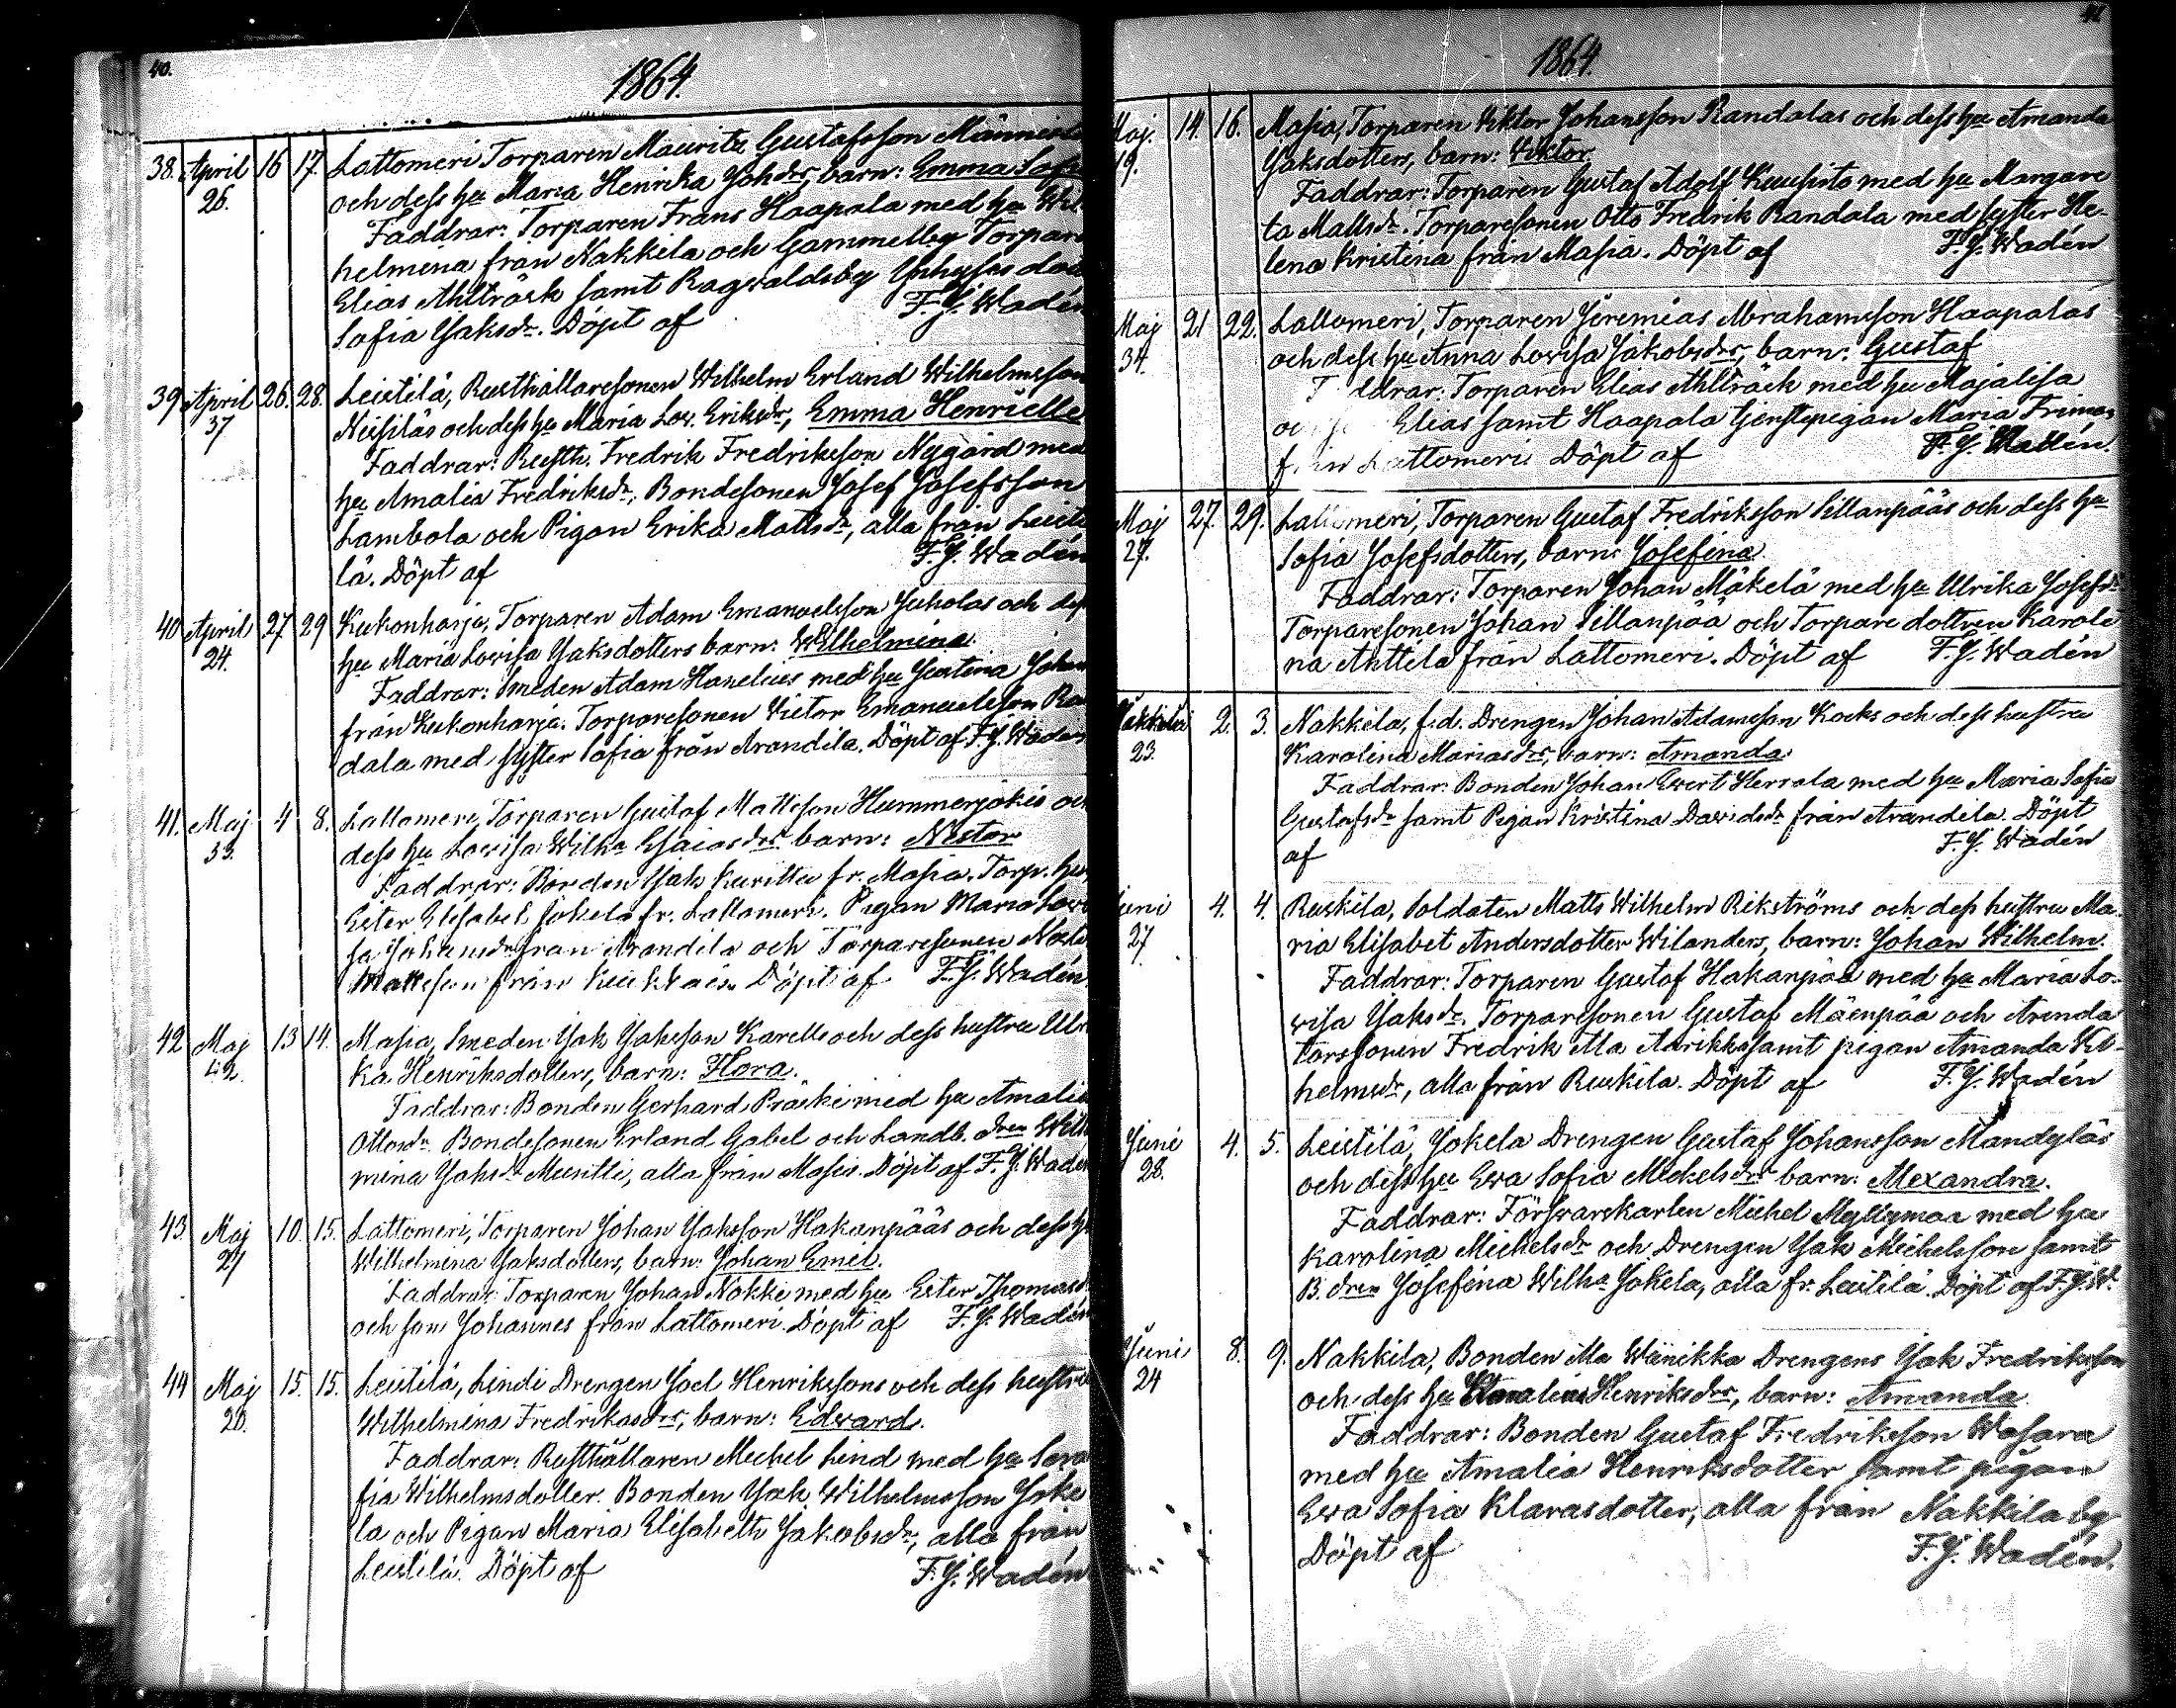 40.
1864.
38. April 16 17. Lattomeri Torparen Maurits Gustafsson
26. och dess hu Maria Henrika Johdrs, barn: Emma
Faddrar: Torparen Frans Haapala med hu Wil
helmina från Nakkila och Gammelby Torpare
Elias Ahlträsk samt Ragvaldsby
Sofia Jaksdr. Döpt af F.J. Wadén
39 April 26. 28. Leistilä, Rusthållaresonen Wilhelm Erland Wilhelmsson
37 och dess hu Maria Lov. Eriksdr, Emma Henriette
Faddrar: Rusth. Fredrik Fredriksson Nygård med
hu Amalia Fredriksdr, Bondesonen Josef Josefsson
Lambola och Pigan Erika Mattsdr, alla från Leisti
lä. Döpt af F.J. Wadén
40 April 27 29 Kukonharja, Torparen Adam Emanuelsson Juholas och dess
24. hu Maria Lovisa Jaksdotters barn: Wilhelmina
Faddrar: Smeden Adam Hanelius med hu Justina Johan
från Kukonharja. Torparesonen Victor Emanuelsson Ran
dala med syster Sofia från Arandila. Döpt af F.J. Wadén
41. Maj 4 8. Lattomeri, Torparen Gustaf Mattsson Hummerjokis och
33. dess hu Lovisa Wilha Esaiasdrs barn: Nestor
Faddrar: Bonden Jak Kurittu fr. Masia. Torp. hu
Ester Elisabet Jokela fr. Lattomeri. Pigan Maria Lovi
sa Johansdr från Arandila och Torparesonen
Mattsson från Döpt af F.J. Wadén
42 Maj 13 14. Masia, Smeden Jak Jaksson Karells och dess hustru Ulri
42. ka Henriksdotters, barn: Flora.
Faddrar: Bonden Gerhard Präski med hu Amalia
Ottosdr. Bondesonen Erland Gabel och Landb. dren Wilh
mina Jaksdr, alla från Masia. Döpt af F.J. Wadén
43. Maj 10. 15. Lattomeri, Torparen Johan Jaksson Hakanpääs och dess hu
27 Wilhelmina Jaksdotters, barn: Johan Emil.
Faddrar: Torparen Johan Nokki med hu Ester Thomasdr
och son Johannes från Lattomeri. Döpt af F.J. Wadén
44 Maj 15. 15. Leistilä, Lindi Drengen Joel Henrikssons och dess hustru
20. Wilhelmina Fredrikasdrs, barn: Edvard.
Faddrar: Rusthållaren Michel Lind med hu Sera
fia Wilhelmsdotter. Bonden Jak Wilhelmsson Joke
la och Pigan Maria Elisabeth Jakobsdr, alla från
Leistilä. Döpt af F.J. Wadén
1864.
Maj. 14. 16. Masia, Torparen Viktor Johansson Randalas och dess hu Amanda
19. Jaksdotters, barn: Viktor
Faddrar: Torparen Gustaf Adolf med hu Margare
ta Mattsdr. Torparesonen Otto Fredrik Randala med syster He-
lena Kristina från Masia. Döpt af F.J. Wadén
Maj 21 22. Lattomeri, Torparen Jeremias Abrahamsson Haapalas
34. och dess hu Anna Lovisa Jakobsdrs, barn: Gustaf
Torparen Elias Ahlträsk med hu Majalisa
Elias samt Haapala tjenstepigan Maria
Lattomeri Döpt af F.J. Wadén.
Maj 27. 29. Lattomeri, Torparen Gustaf Fredriksson Sillanpääs och dess hu
27. Sofia Josefsdotters, barn: Josefina
Faddrar: Torparen Johan Mäkelä med hu Ulrika Josefsdr
Torparesonen Johan Sillanpää och Torparedottren Karoli
na Anttila från Lattomeri. Döpt af F.J. Wadén
2. 3. Nakkila, f.d. Drengen Johan Adamsson Kocks och dess hustru
23. Karolina Mariasdrs, barn: Amanda
Faddrar: Bonden Johan Evert Herrala med hu Maria Sofia
Gustafsdr samt Pigan Kristina Davidsdr från Arandila. Döpt
af F.J. Wadén
Juni 4. 4. Ruskila, Soldaten Matts Wilhelm Rikströms och dess hustru Ma
27 ria Elisabet Andersdotter Wilanders, barn: Johan Wilhelm.
Faddrar: Torparen Gustaf Hakanpää med hu Maria Lo-
visa Jaksdr. Torparesonen Gustaf Mäenpää och Arenda
torssonen Fredrik Ala samt pigan Amanda Wil-
helmsdr, alla från Ruskila. Döpt af F.J. Wadén
Juni 4. 5. Leistilä, Jokela Drengen Gustaf Johansson Mandeläs
28. och dess hu Eva Sofia Michelsdrs barn: Alexandra.
Faddrar: Försvarskarlen Michel Myllymaa med hu
Karolina Michelsdr och Drengen Jak Michelsson samt
B. dren Josefina Wilha Jokela, alla fr. Leistilä. Döpt af F.J.W.
Juni 8. 9. Nakkila, Bonden Ala Wänikka Drengens Jak Fredriksson
24 och dess hu Amalia Henriksdrs, barn: Amanda
Faddrar: Bonden Gustaf Fredriksson Wasara
med hu Amalia Henriksdotter samt pigan
Eva Sofia Klarasdotter, alla från Nakkila by
Döpt af F.J. Wadén.